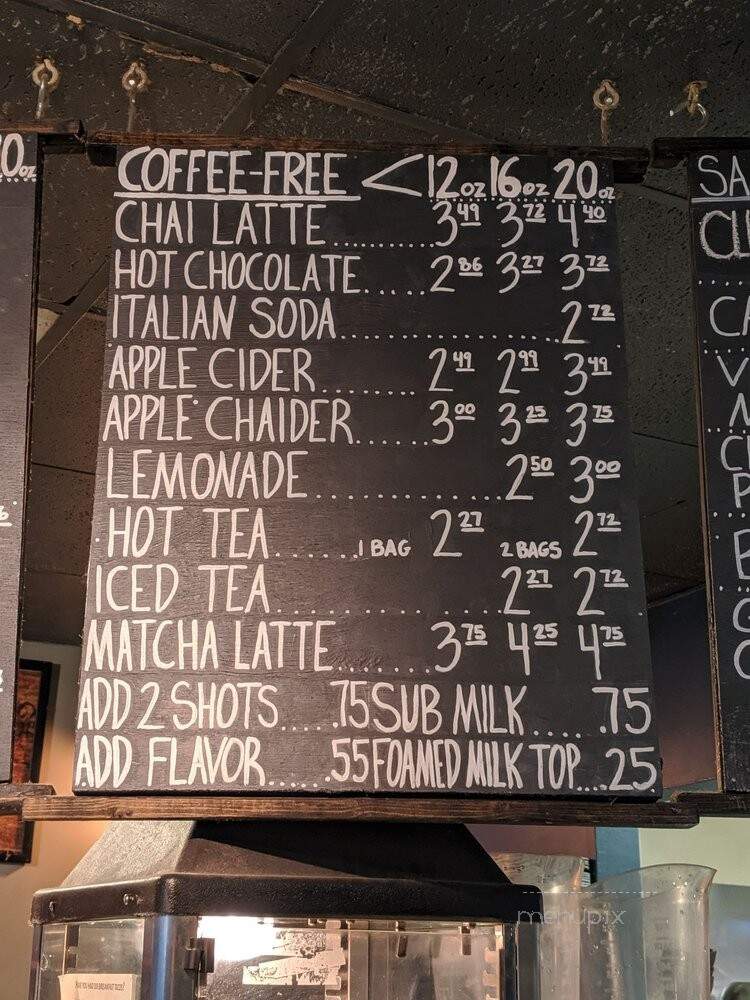 0oz
COFFEE-FREE < 12oz 16oz 20oz
CHAI LATTE..........3.49 3.72 4.40
HOT CHOCOLATE......2.86 3.27 3.72
ITALIAN SODA....................2.72
APPLE CIDER........2.49 2.99 3.49
APPLE CHAIDER......3.00 3.25 3.75
LEMONADE................2.50 3.00
HOT TEA......1 BAG 2.27 2 BAGS 2.72
ICED TEA..................2.27 2.72
MATCHA LATTE.......3.75 4.25 4.75
ADD 2 SHOTS.....75 SUB MILK.....75
ADD FLAVOR......55 FOAMED MILK TOP...25
SA
CL
CA
V
menupix